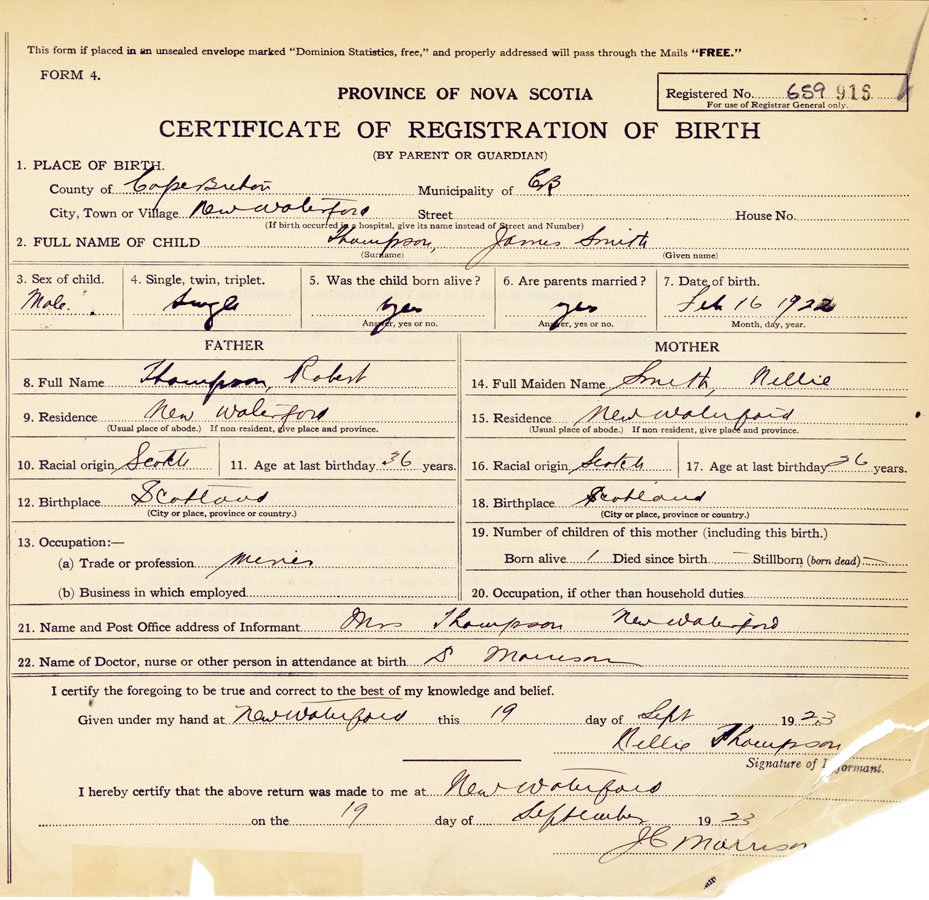 This form if placed in an unsealed envelope marked "Dominion Statistics, free," and properly addressed will pass through the Mails "FREE."
FORM 4.
PROVINCE OF NOVA SCOTIA
Registered No. 659 915
For use of Registrar General only.
CERTIFICATE OF REGISTRATION OF BIRTH
(BY PARENT OR GUARDIAN)
1. PLACE OF BIRTH.
County of Cape Breton Municipality of CB
City, Town or Village New Waterford Street House No.
(If birth occurred in a hospital, give its name instead of Street and Number)
2. FULL NAME OF CHILD Thompson, James Smith
(Surname) (Given name)
3. Sex of child. 4. Single, twin, triplet. 5. Was the child born alive? 6. Are parents married? 7. Date of birth.
Male. Single yes yes Feb 16 1922
Answer, yes or no. Answer, yes or no. Month, day, year.
FATHER MOTHER
8. Full Name Thompson, Robert 14. Full Maiden Name Smith, Nellie
9. Residence New Waterford 15. Residence New Waterford
(Usual place of abode.) If non-resident, give place and province. (Usual place of abode.) If non-resident, give place and province.
10. Racial origin Scotch 11. Age at last birthday 36 years. 16. Racial origin Scotch 17. Age at last birthday 36 years.
12. Birthplace Scotland 18. Birthplace Scotland
(City or place, province or country.) (City or place, province or country.)
13. Occupation:— 19. Number of children of this mother (including this birth.)
(a) Trade or profession miner Born alive 1 Died since birth — Stillborn (born dead) —
(b) Business in which employed 20. Occupation, if other than household duties
21. Name and Post Office address of Informant Mrs Thompson New Waterford
22. Name of Doctor, nurse or other person in attendance at birth S Morrison
I certify the foregoing to be true and correct to the best of my knowledge and belief.
Given under my hand at New Waterford this 19 day of Sept 1923
Nellie Thompson
Signature of Informant.
I hereby certify that the above return was made to me at New Waterford
on the 19 day of September 1923
JC Morrison